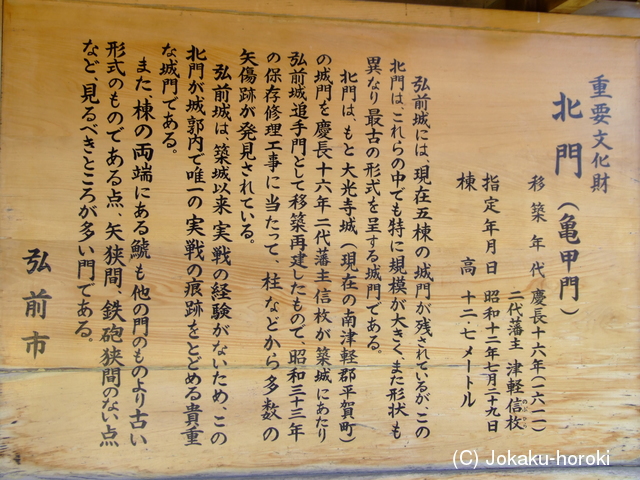 重要文化財
北門（亀甲門）
移築年代 慶長十六年（一六一一）
二代藩主 津軽信枚
のぶひら
指定年月日 昭和十二年七月二十九日
棟高 十二・七メートル
弘前城には、現在五棟の城門が残されているが、この
北門は、これらの中でも特に規模が大きく、また形状も
異なり最古の形式を呈する城門である。
北門は、もと大光寺城（現在の南津軽郡平賀町）
の城門を慶長十六年二代藩主信枚が築城にあたり
弘前城追手門として移築再建したもので、昭和三十三年
の保存修理工事に当たって、柱などから多数の
矢傷跡が発見されている。
弘前城は、築城以来実戦の経験がないため、この
北門が城郭内で唯一の実戦の痕跡をとどめる貴重
な城門である。
また、棟の両端にある鯱も他の門のものより古い
形式のものである点、矢狭間、鉄砲狭間のない点
など、見るべきところが多い門である。
弘前市
(C) Jokaku-horoki